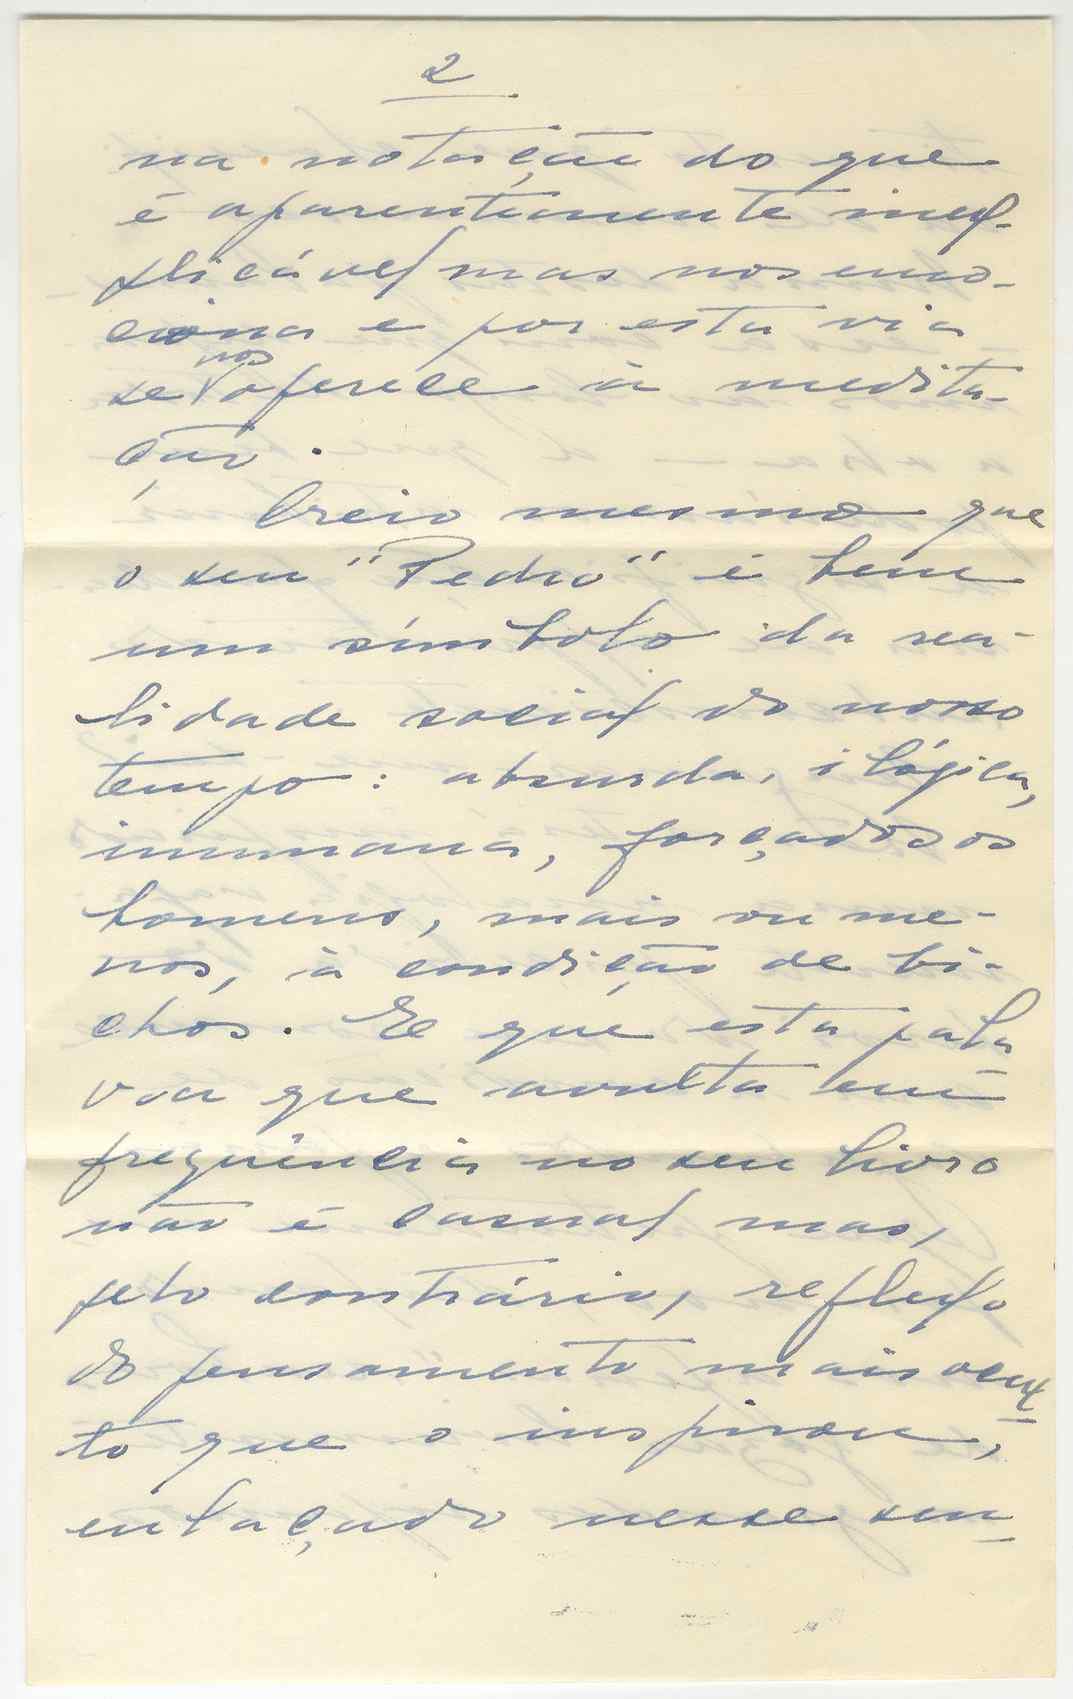 2
na notação do que
é aparentemente inex-
plicável mas nos emo-
ciona e por esta via
se nos oferece à medita-
ção.
Creio mesmo que
o seu "Pedro" é bem
um símbolo da rea-
lidade social do nosso
tempo: absurda, ilógica,
inumana, forçados os
homens, mais ou me-
nos, à condição de bi-
chos. E que esta pala
vra que avulta em
frequência no seu livro
não é casual mas,
pelo contrário, reflexo
do pensamento mais ocul-
to que o inspirou,
enlaçado nesse sen-